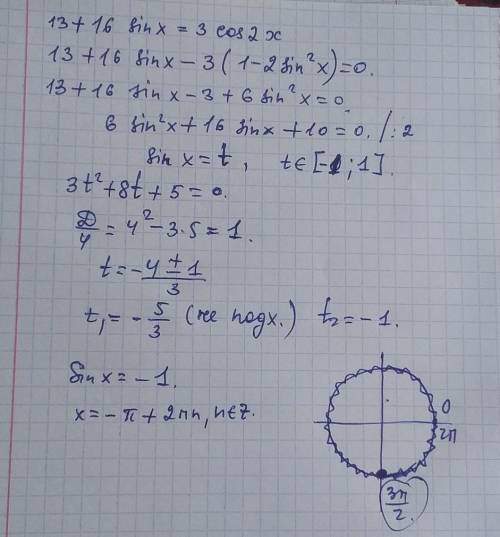 13 + 16 sin x = 3 cos 2x
13 + 16 sin x - 3 (1 - 2 sin²x) = 0.
13 + 16 sin x - 3 + 6 sin²x = 0.
6 sin²x + 16 sin x + 10 = 0. /: 2
sin x = t, t ∈ [-1; 1].
3t² + 8t + 5 = 0.
D/4 = 4² - 3·5 = 1.
t = -4 ± 1 / 3
t₁ = -5/3 (не подх.) t₂ = -1.
sin x = -1.
x = -π + 2πn, n ∈ Z.
0
2π
3π/2